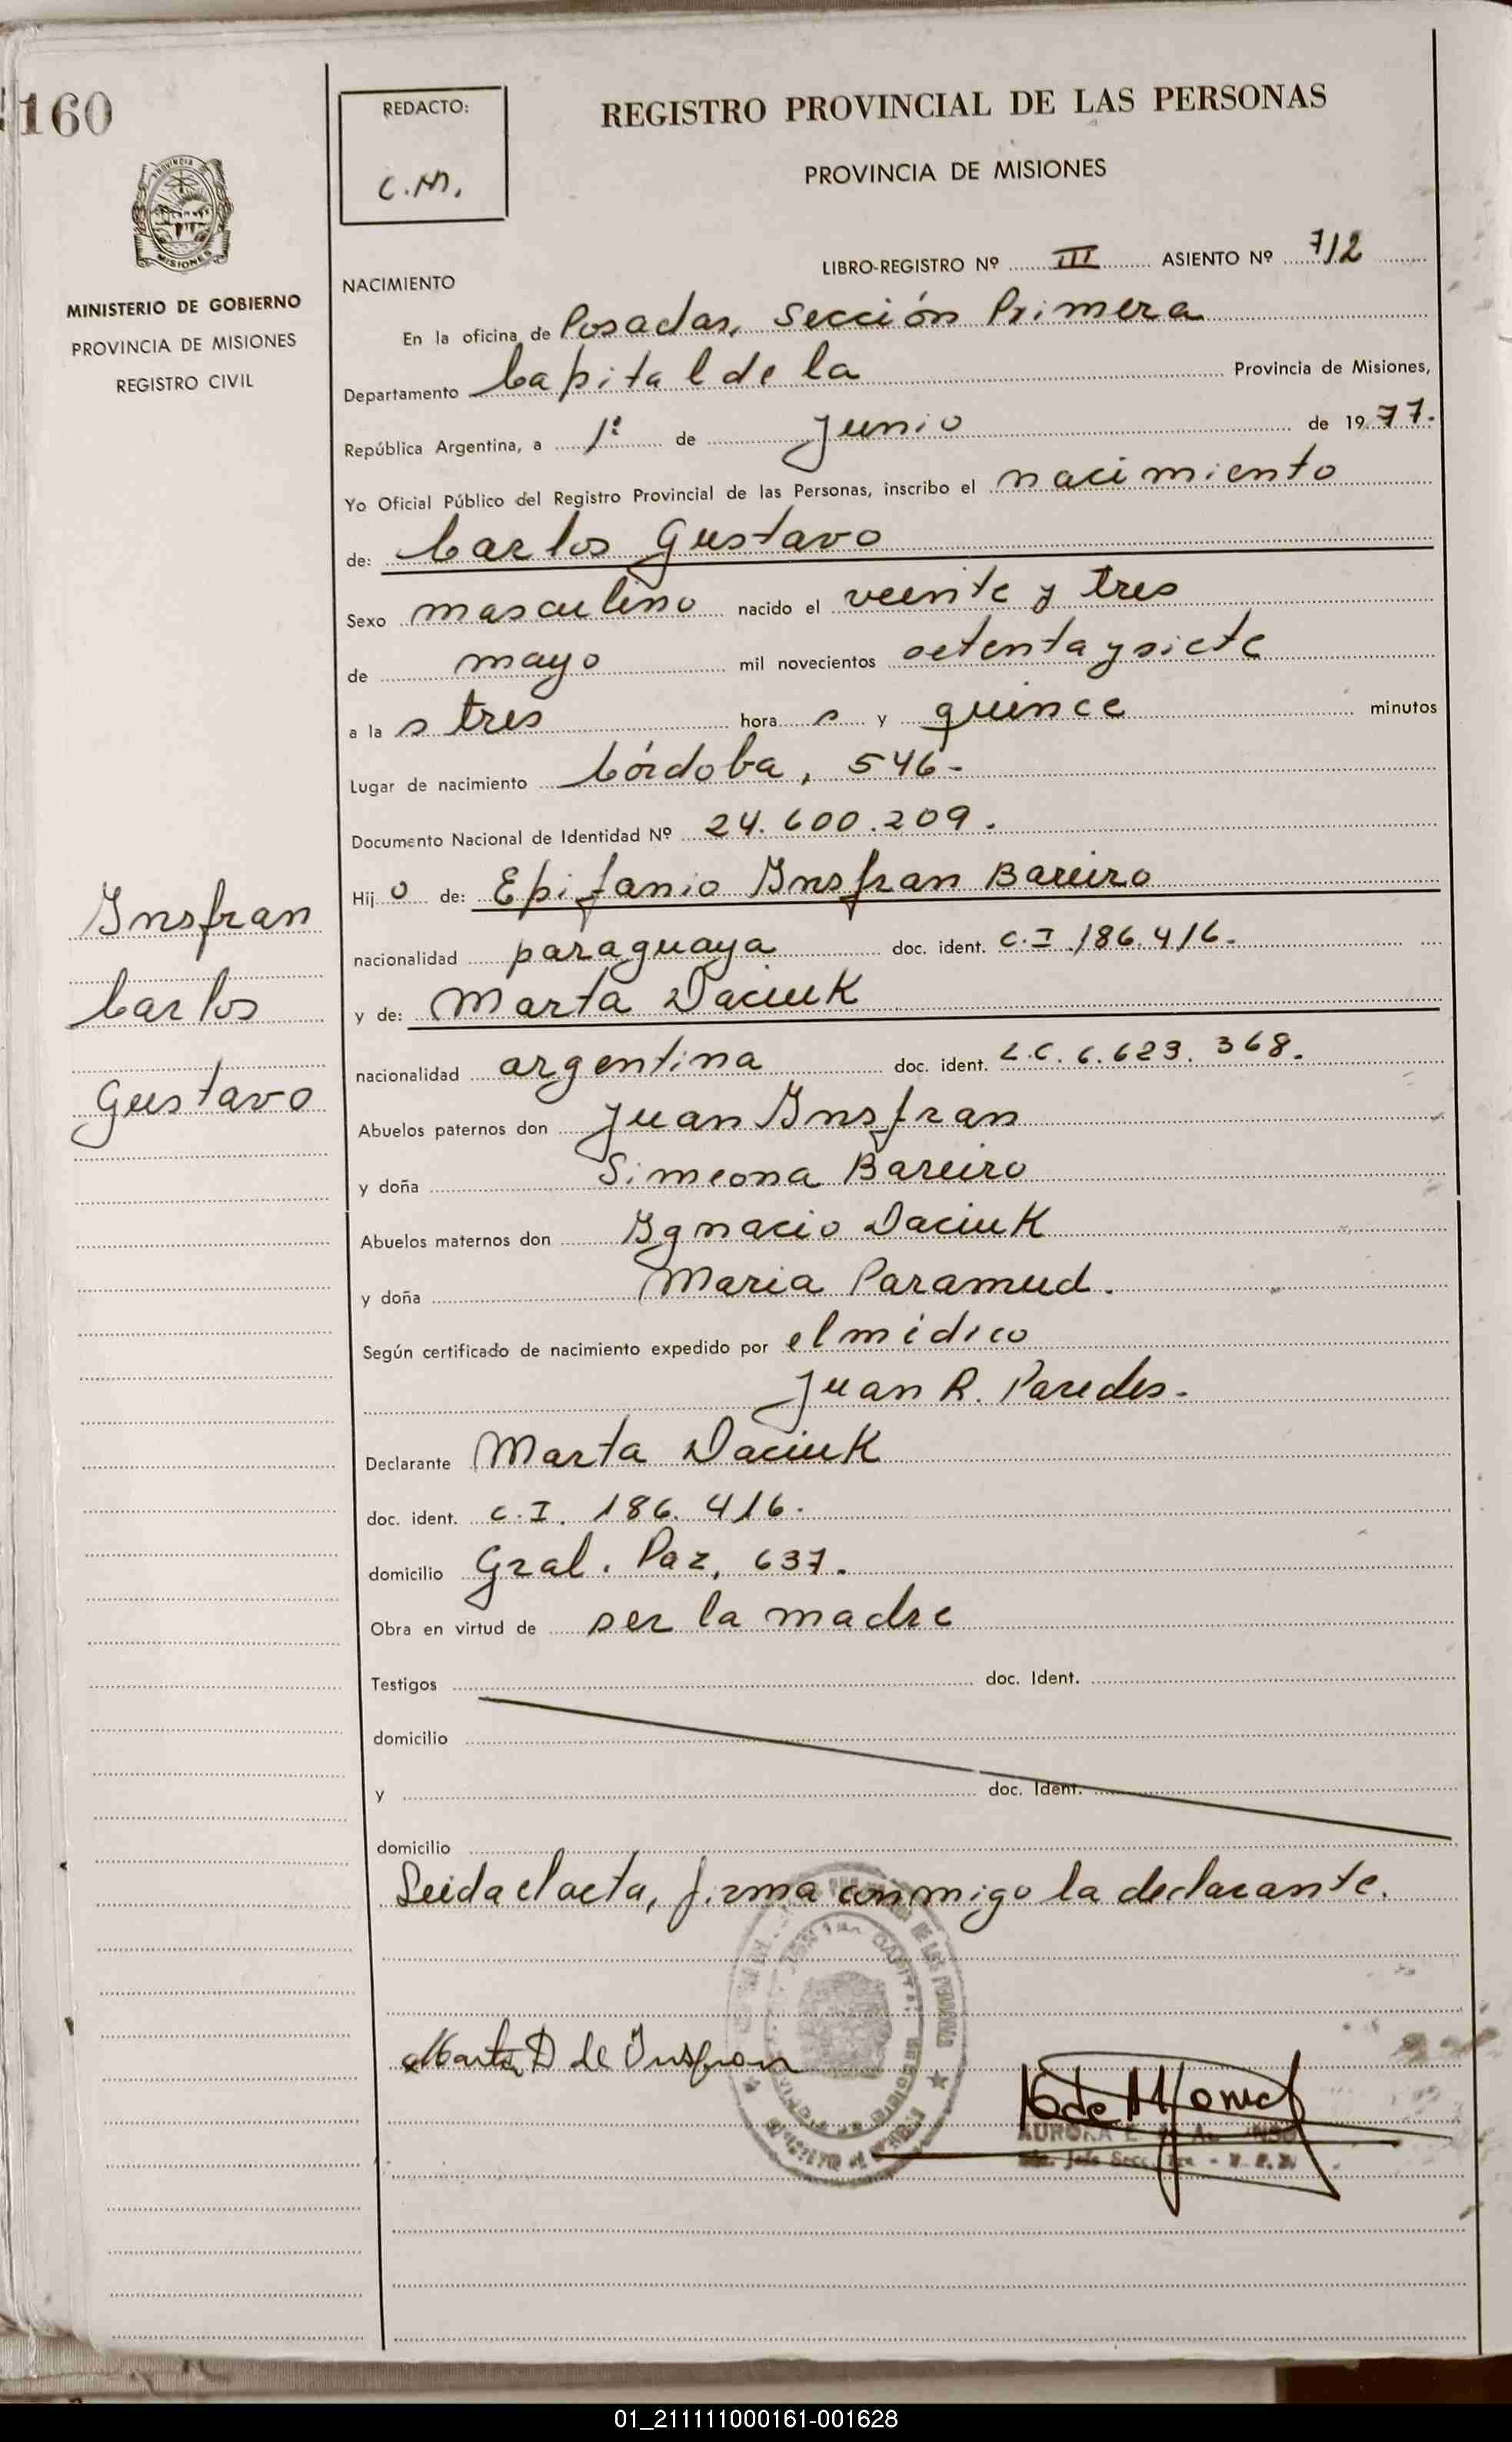 160
REDACTO:
C.M.
REGISTRO PROVINCIAL DE LAS PERSONAS
PROVINCIA DE MISIONES
PROVINCIA
MISIONES
MINISTERIO DE GOBIERNO
PROVINCIA DE MISIONES
REGISTRO CIVIL
LIBRO-REGISTRO Nº III ASIENTO Nº 712
NACIMIENTO
En la oficina de Posadas, Sección Primera
Departamento Capital de la Provincia de Misiones,
República Argentina, a 1º de Junio de 1977.
Yo Oficial Público del Registro Provincial de las Personas, inscribo el nacimiento
de: Carlos Gustavo
Sexo masculino nacido el veinte y tres
de mayo mil novecientos setenta y siete
a la s tres hora s y quince minutos
Lugar de nacimiento Córdoba, 546-
Documento Nacional de Identidad Nº 24.600.209.
Hij o de: Epifanio Insfran Bareiro
nacionalidad paraguaya doc. ident. C.I 186.416.
y de: Marta Daciuk
nacionalidad argentina doc. ident. L.C. 6.623.368.
Abuelos paternos don Juan Insfran
y doña Simeona Bareiro
Abuelos maternos don Ignacio Daciuk
y doña Maria Paramud.
Según certificado de nacimiento expedido por el médico
Juan R. Paredes.
Declarante Marta Daciuk
doc. ident. C.I. 186.416.
domicilio Gral. Paz, 637.
Obra en virtud de ser la madre
Testigos doc. Ident.
domicilio
y doc. Ident.
domicilio
Leida el acta, firma conmigo la declarante.
Insfran
Carlos
Gustavo
Marta D de Insfran
AURORA E
01_211111000161-001628